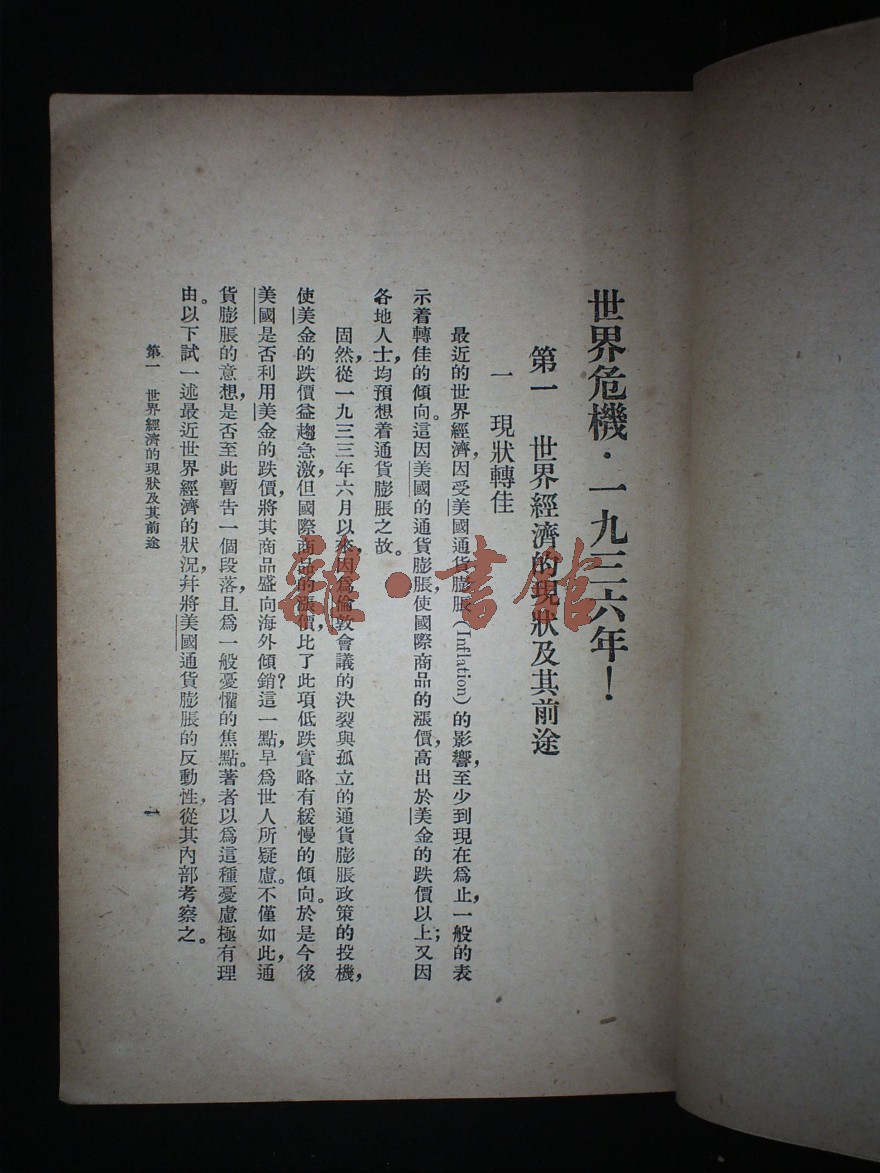 世界危機·一九三六年！
第一　世界經濟的現狀及其前途
一　現狀轉佳
最近的世界經濟，因受美國通貨膨脹(Inflation)的影響，至少到現在爲止，一般的表
示着轉佳的傾向。這因美國的通貨膨脹，使國際商品的漲價，高出於美金的跌價以上；又因
各地人士，均預想着通貨膨脹之故。
固然，從一九三三年六月以來，因爲倫敦會議的決裂與孤立的通貨膨脹政策的投機，
使美金的跌價益趨急激，但國際商品的漲價，比了此項低跌實略有緩慢的傾向。於是今後
美國是否利用美金的跌價，將其商品盛向海外傾銷？這一點，早爲世人所疑慮。不僅如此，通
貨膨脹的意想，是否至此暫告一個段落，且爲一般憂懼的焦點。著者以爲這種憂慮極有理
由。以下試一述最近世界經濟的狀況，幷將美國通貨膨脹的反動性，從其內部考察之。
第一　世界經濟的現狀及其前途
一
雜·書館